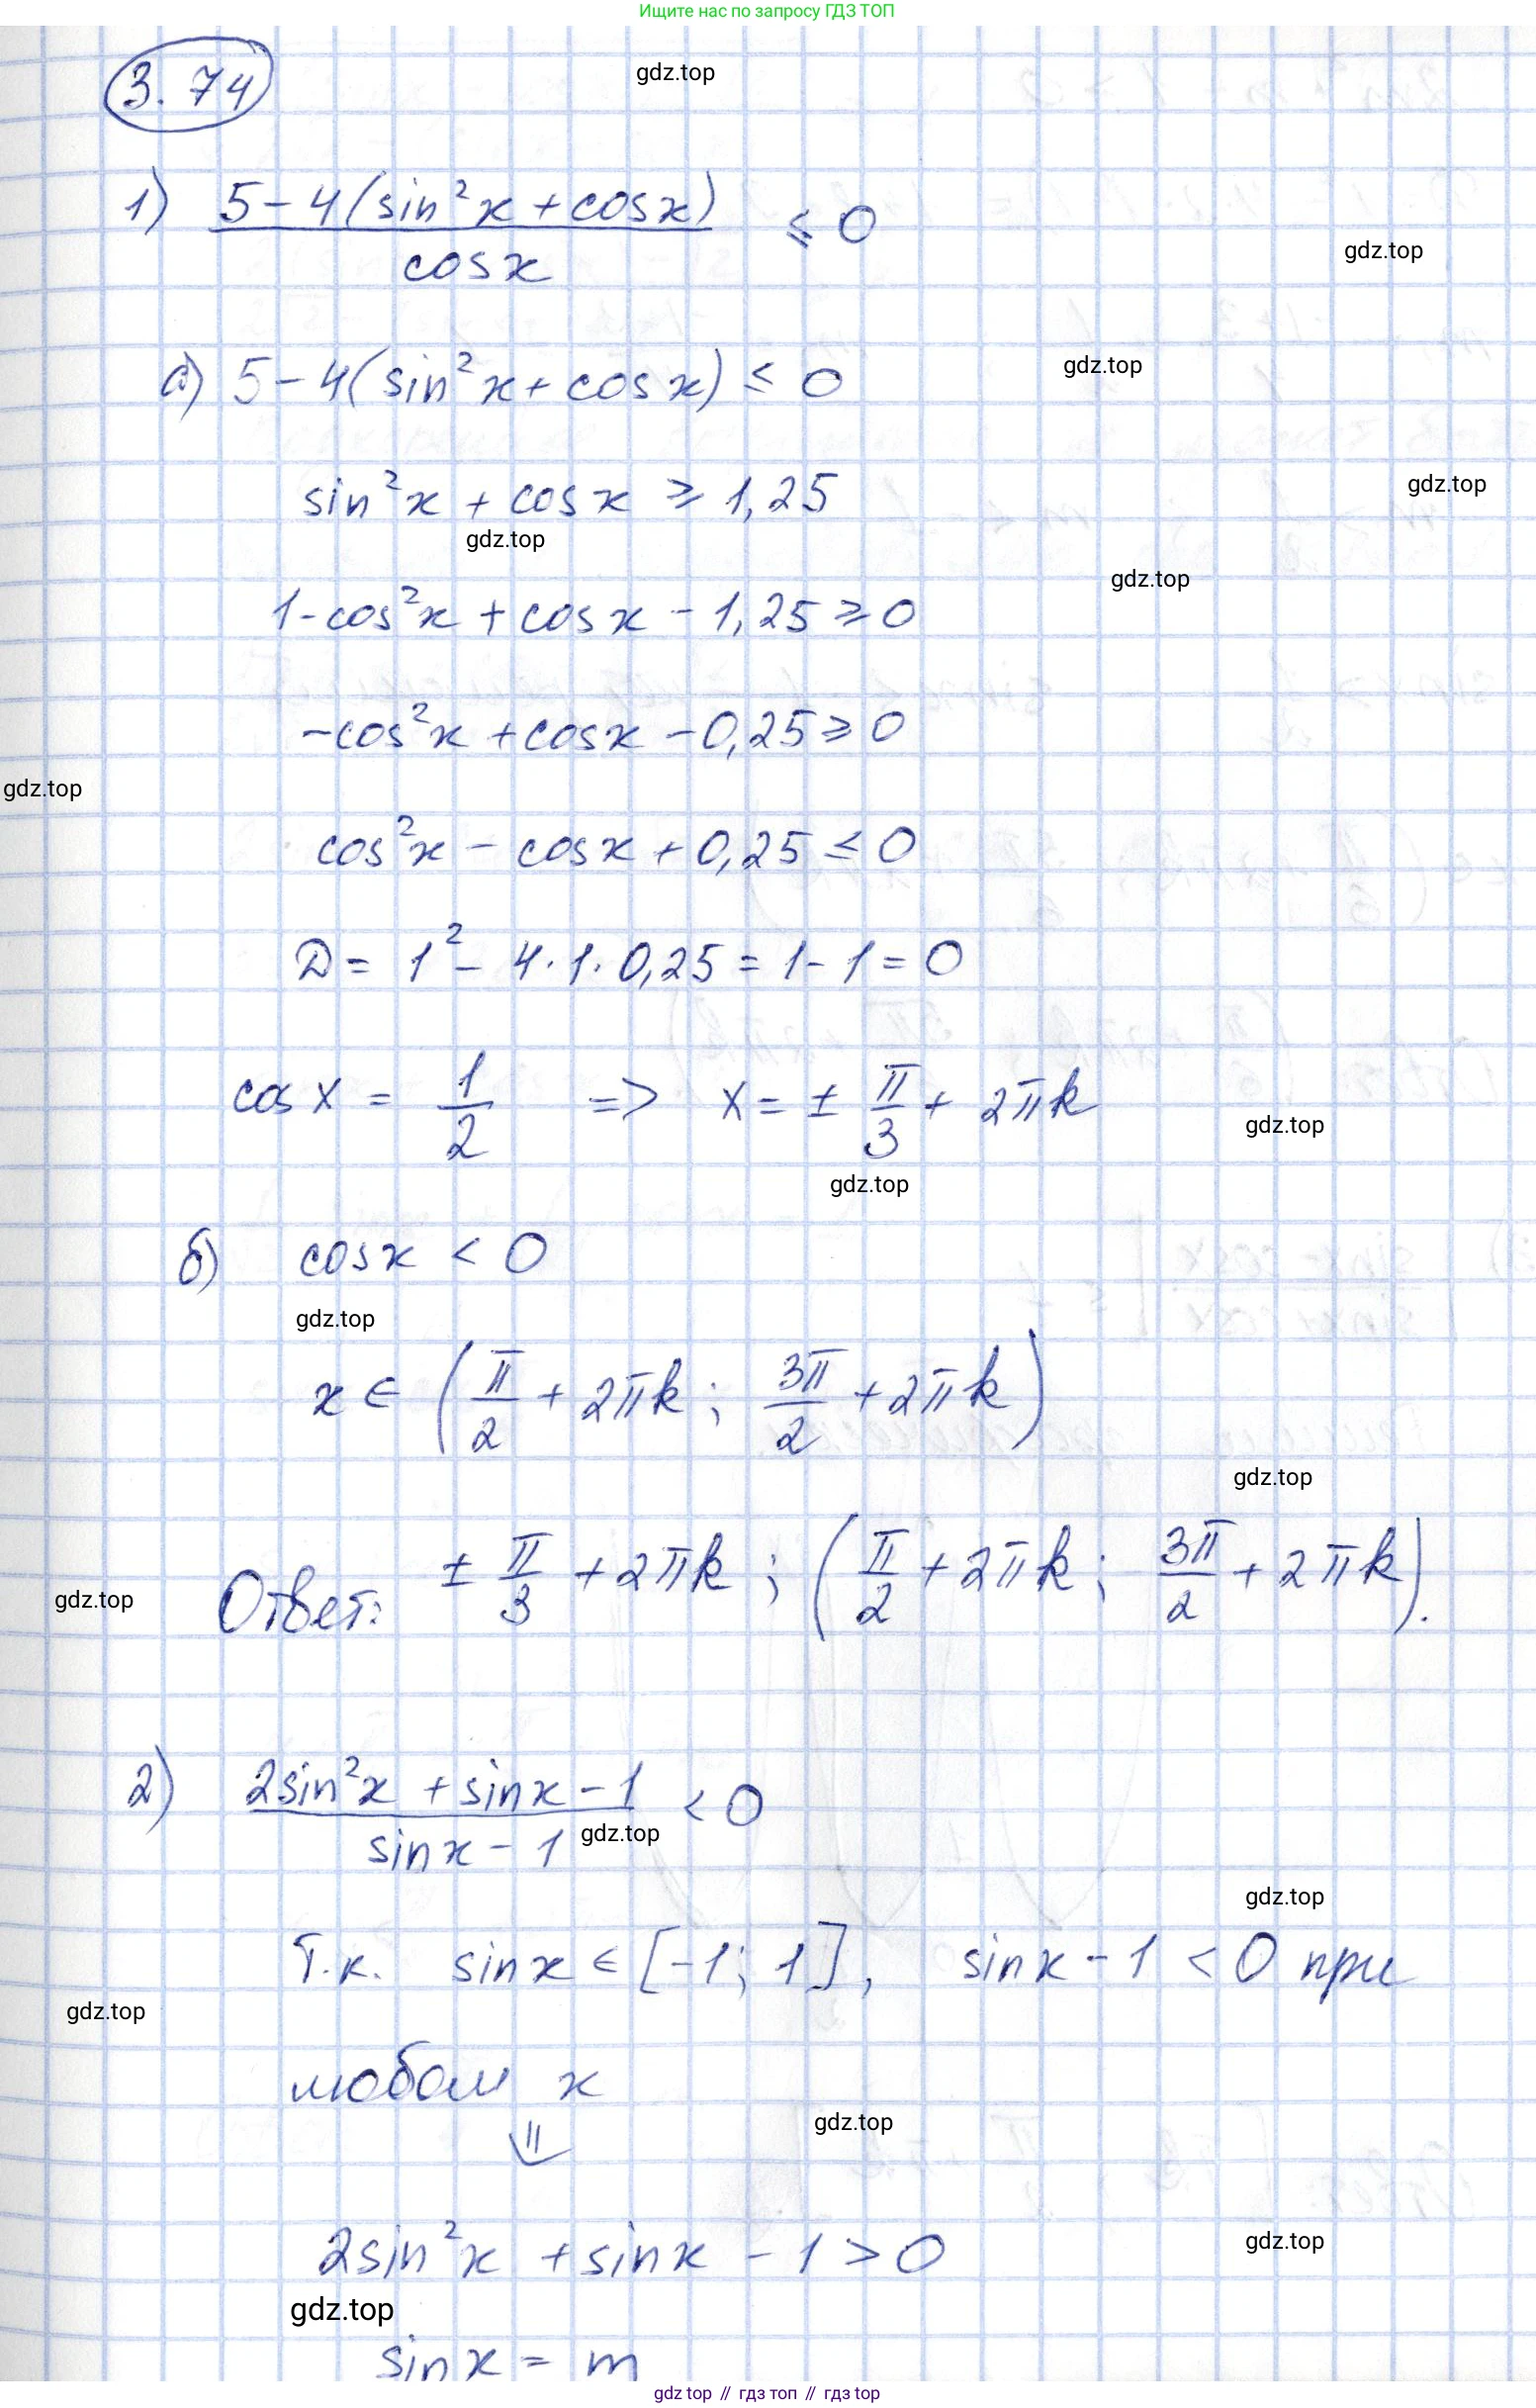 Ищите нас по запросу ГДЗ ТОП
3.74
gdz.top
1) (5 - 4(sin²x + cosx))/cosx ⩽ 0
gdz.top
а) 5 - 4(sin²x + cosx) ≤ 0
gdz.top
sin²x + cosx ⩾ 1,25
gdz.top
gdz.top
gdz.top
1 - cos²x + cosx - 1,25 ⩾ 0
-cos²x + cosx - 0,25 ⩾ 0
gdz.top
cos²x - cosx + 0,25 ≤ 0
D = 1² - 4·1·0,25 = 1 - 1 = 0
cosx = 1/2 => x = ± π/3 + 2πk
gdz.top
gdz.top
б) cosx < 0
gdz.top
x ∈ (π/2 + 2πk; 3π/2 + 2πk)
gdz.top
Ответ: ± π/3 + 2πk; (π/2 + 2πk; 3π/2 + 2πk).
gdz.top
2) (2sin²x + sinx - 1)/(sinx - 1) < 0
gdz.top
gdz.top
Т.к. sinx ∈ [-1; 1], sinx - 1 < 0 при
gdz.top
любом x
gdz.top
⇓
2sin²x + sinx - 1 > 0
gdz.top
gdz.top
sinx = m
gdz top // гдз топ // gdz top